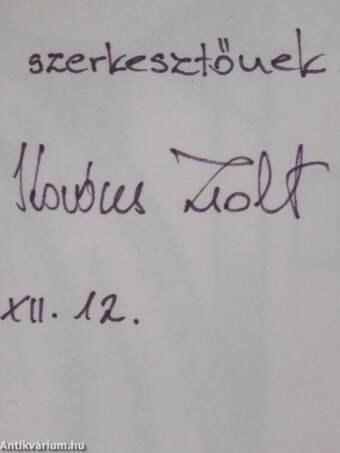 szerkesztőnek
Kovács Zsolt
XII. 12.
Antikvárium.hu